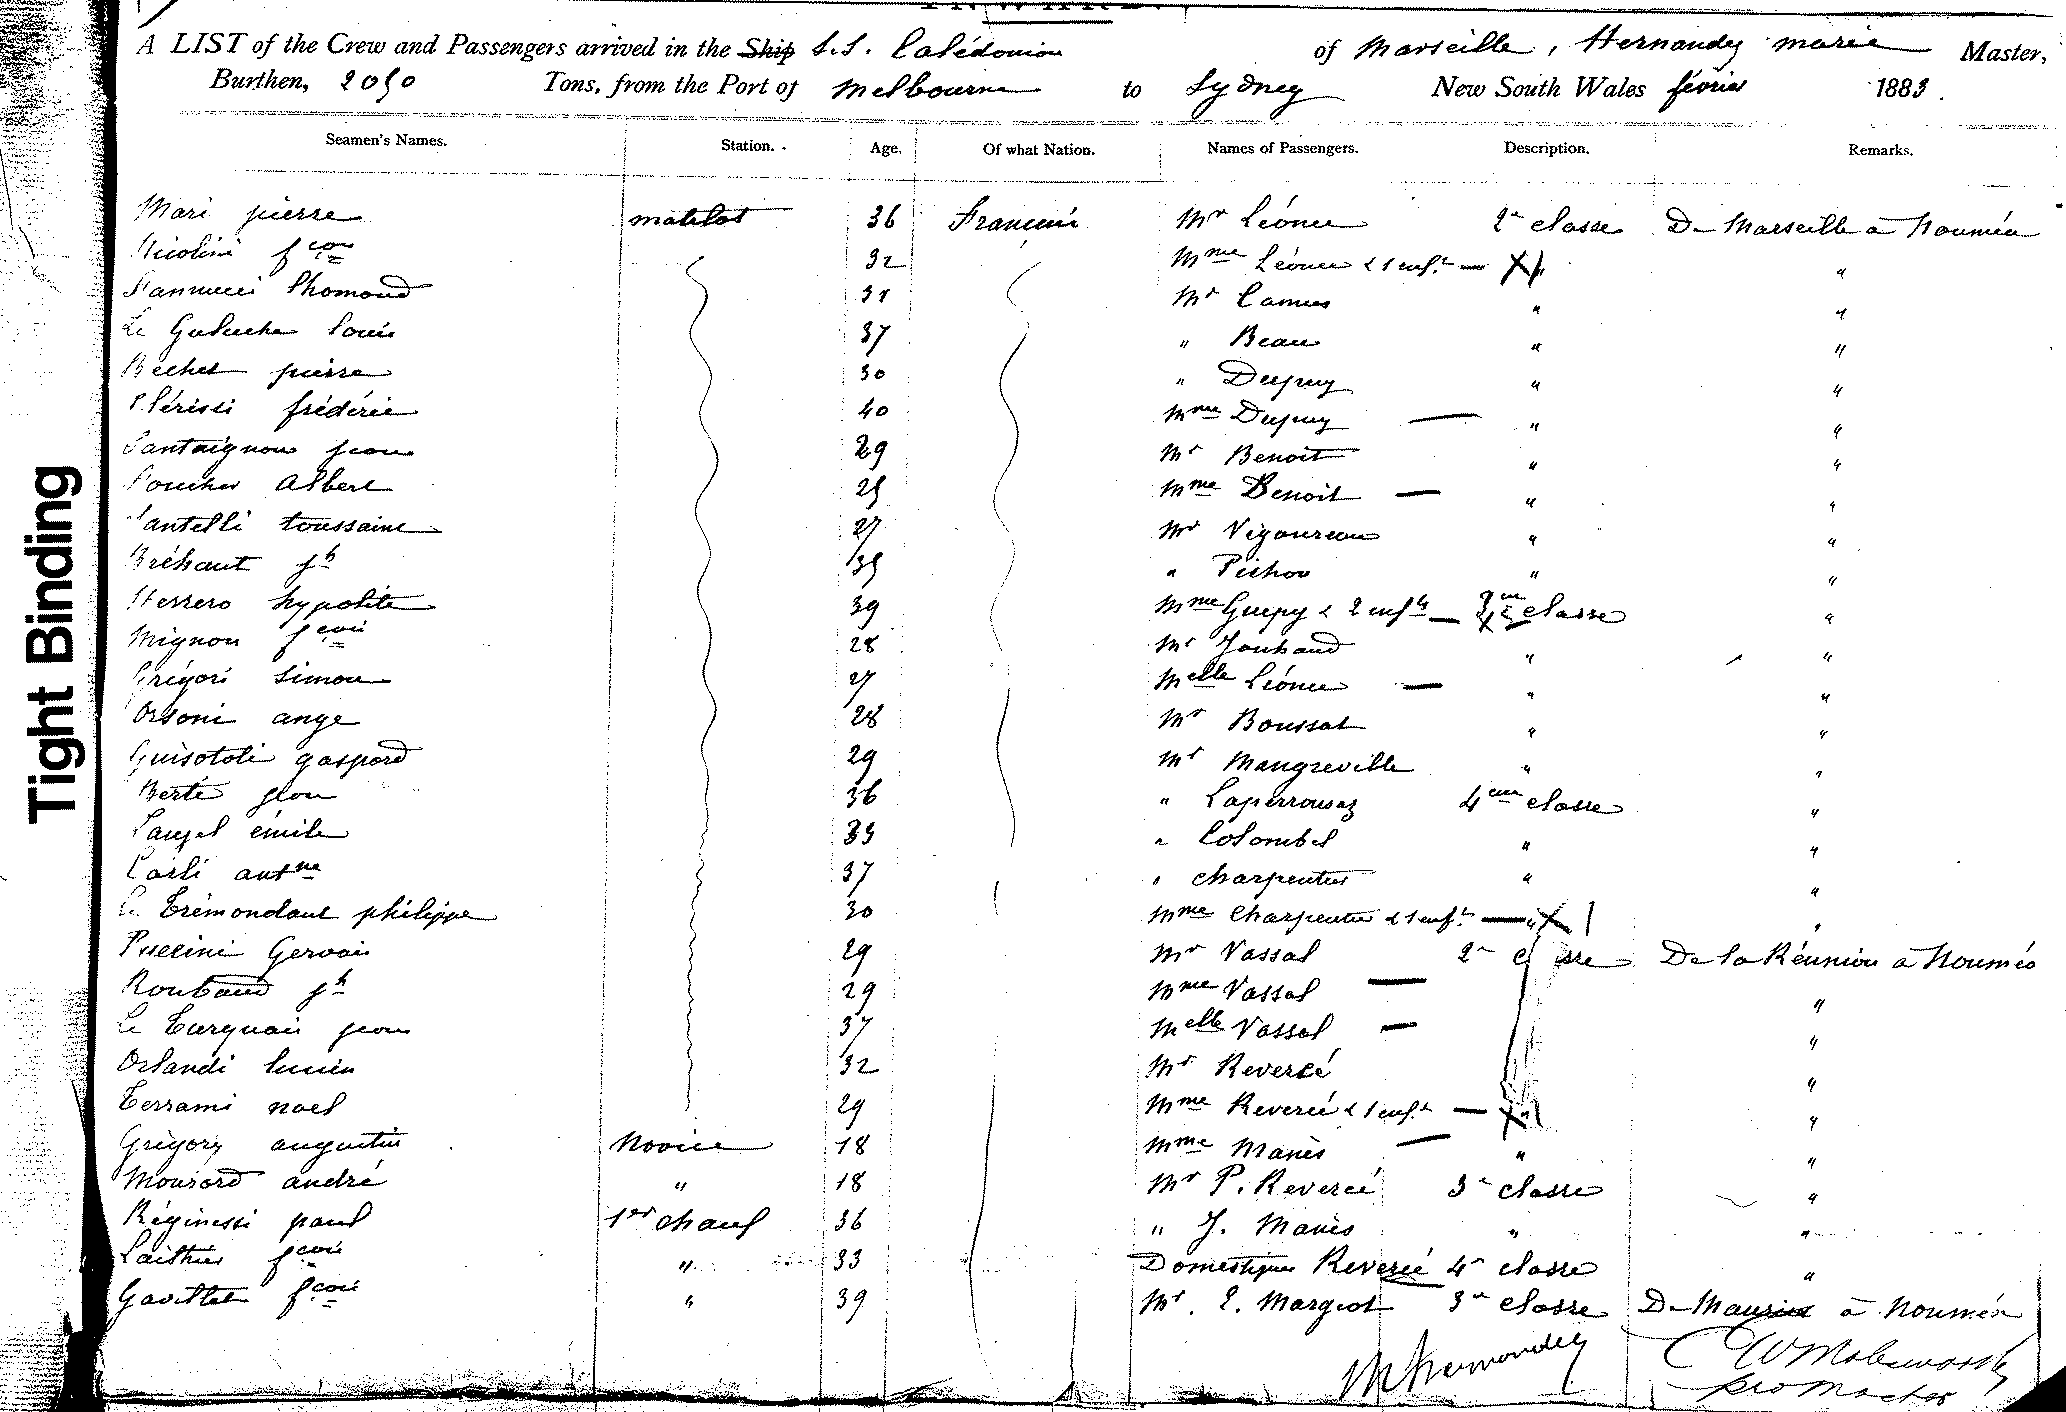 A LIST of the Crew and Passengers arrived in the Ship S.S. Calédonien of Marseille, Hernandez Marie Master,
Burthen, 2050 Tons, from the Port of Melbourne to Sydney New South Wales février 1883.
Seamen's Names. Station. Age. Of what Nation. Names of Passengers. Description. Remarks.
Mari pierre matelot 36 Français Mr Léonce 2e classe De Marseille à Nouméa
Nicolini fçois 32 Mme Léonce & 1 enft — " "
31 Mr Camus " "
Le louis 37 " Beau " "
Bechet pierre 30 " Dupuy " "
frédéric 40 Mme Dupuy — " "
Santaignon jean 29 Mr Benoit " "
Albert 25 Mme Benoit — " "
Santelli toussaint 27 Mr Vigoureau " "
Bréhaut jh 35 " Pichon " "
Herrero hypolite 39 Mme Guepy & 2 enfts — 3me classe "
Mignon fçois 28 Mr Jouhaud " "
Grégori Simon 27 Melle Léonce — " "
Orsoni ange 28 Mr Boussat " "
Guisotoli gaspard 29 Mr Mangreville " "
Berté jean 36 " Laperrousaz 4eme classe "
Laugel émile 33 " Colombel " "
Carli antne 37 " Charpentier " "
Le Trémondant philippe 30 Mme Charpentier & 1 enft — " "
Puccini Gervais 29 Mr Vassal 2e classe De la Réunion à Nouméa
Roubaud jh 29 Mme Vassal — "
Le Turquais jean 37 Melle Vassal — "
Orlandi lucien 32 Mr Revercé "
Terrami noel 29 Mme Revercé & 1 enft — " "
Grégory augustin Novice 18 Mme Manès — " "
Mourard andré " 18 Mr P. Revercé 3e classe "
Réginessi paul 1er chauf 36 " J. Manès " "
Laithier fçois " 33 Domestique Revercé 4e classe "
Gavillet fçois " 39 Mr. E. Margeot 3e classe De Maurice à Nouméa
M Hernandez
W Molesworth
pro Master
Tight Binding